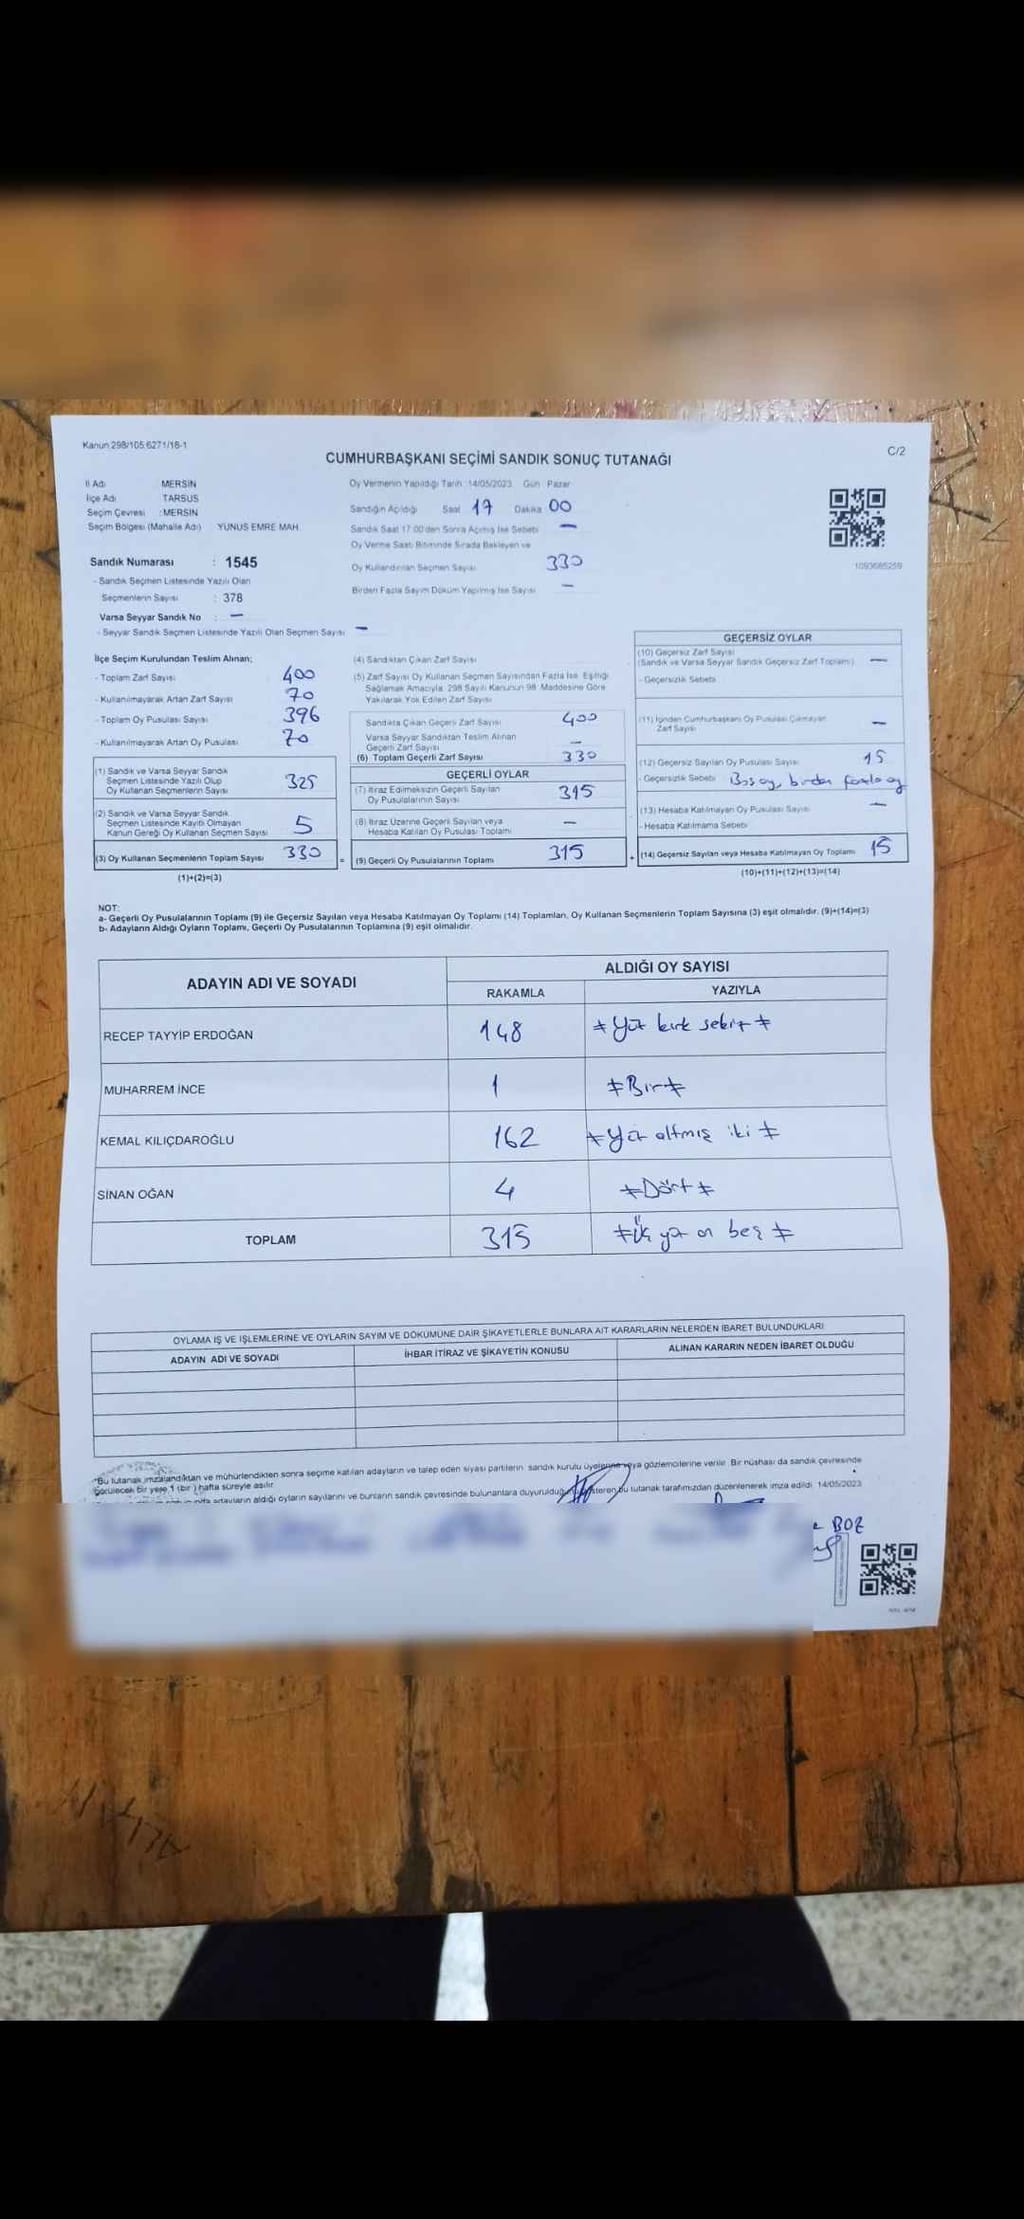 Kanun 298/105 6271/18-1
C/2
CUMHURBAŞKANI SEÇİMİ SANDIK SONUÇ TUTANAĞI
İl Adı MERSİN
İlçe Adı TARSUS
Seçim Çevresi : MERSİN
Seçim Bölgesi (Mahalle Adı) YUNUS EMRE MAH.
Sandık Numarası : 1545
- Sandık Seçmen Listesinde Yazılı Olan
Seçmenlerin Sayısı : 378
Varsa Seyyar Sandık No : —
- Seyyar Sandık Seçmen Listesinde Yazılı Olan Seçmen Sayısı —
Oy Vermenin Yapıldığı Tarih 14/05/2023 Gün Pazar
Sandığın Açıldığı Saat 17 Dakika 00
Sandık Saat 17:00'den Sonra Açılmış İse Sebebi —
Oy Verme Saati Bitiminde Sırada Bekleyen ve
Oy Kullandırılan Seçmen Sayısı 330
Birden Fazla Sayım Döküm Yapılmış İse Sayısı —
1093685259
İlçe Seçim Kurulundan Teslim Alınan;
- Toplam Zarf Sayısı 400
- Kullanılmayarak Artan Zarf Sayısı 70
- Toplam Oy Pusulası Sayısı 396
- Kullanılmayarak Artan Oy Pusulası 70
(1) Sandık ve Varsa Seyyar Sandık
Seçmen Listesinde Yazılı Olup
Oy Kullanan Seçmenlerin Sayısı 325
(2) Sandık ve Varsa Seyyar Sandık
Seçmen Listesinde Kayıtlı Olmayan
Kanun Gereği Oy Kullanan Seçmen Sayısı 5
(3) Oy Kullanan Seçmenlerin Toplam Sayısı 330
(1)+(2)=(3)
=
(4) Sandıktan Çıkan Zarf Sayısı
(5) Zarf Sayısı Oy Kullanan Seçmen Sayısından Fazla İse Eşitliği
Sağlamak Amacıyla 298 Sayılı Kanunun 98 Maddesine Göre
Yakılarak Yok Edilen Zarf Sayısı
Sandıkta Çıkan Geçerli Zarf Sayısı 400
Varsa Seyyar Sandıktan Teslim Alınan
Geçerli Zarf Sayısı —
(6) Toplam Geçerli Zarf Sayısı 330
GEÇERLİ OYLAR
(7) İtiraz Edilmeksizin Geçerli Sayılan
Oy Pusulalarının Sayısı 315
(8) İtiraz Üzerine Geçerli Sayılan veya
Hesaba Katılan Oy Pusulası Toplamı —
(9) Geçerli Oy Pusulalarının Toplamı 315
+
GEÇERSİZ OYLAR
(10) Geçersiz Zarf Sayısı
(Sandık ve Varsa Seyyar Sandık Geçersiz Zarf Toplamı) —
- Geçersizlik Sebebi
(11) İçinden Cumhurbaşkanı Oy Pusulası Çıkmayan
Zarf Sayısı —
(12) Geçersiz Sayılan Oy Pusulası Sayısı 15
- Geçersizlik Sebebi Boş oy, birden fazla oy
(13) Hesaba Katılmayan Oy Pusulası Sayısı —
- Hesaba Katılmama Sebebi
(14) Geçersiz Sayılan veya Hesaba Katılmayan Oy Toplamı 15
(10)+(11)+(12)+(13)=(14)
NOT:
a- Geçerli Oy Pusulalarının Toplamı (9) ile Geçersiz Sayılan veya Hesaba Katılmayan Oy Toplamı (14) Toplamları, Oy Kullanan Seçmenlerin Toplam Sayısına (3) eşit olmalıdır. (9)+(14)=(3)
b- Adayların Aldığı Oyların Toplamı, Geçerli Oy Pusulalarının Toplamına (9) eşit olmalıdır.
ADAYIN ADI VE SOYADI
ALDIĞI OY SAYISI
RAKAMLA YAZIYLA
RECEP TAYYİP ERDOĞAN 148 ≠ Yüz kırk sekiz ≠
MUHARREM İNCE 1 ≠ Bir ≠
KEMAL KILIÇDAROĞLU 162 ≠ Yüz altmış iki ≠
SİNAN OĞAN 4 ≠ Dört ≠
TOPLAM 315 ≠ Üç yüz on beş ≠
OYLAMA İŞ VE İŞLEMLERİNE VE OYLARIN SAYIM VE DÖKÜMÜNE DAİR ŞİKAYETLERLE BUNLARA AİT KARARLARIN NELERDEN İBARET BULUNDUKLARI
ADAYIN ADI VE SOYADI İHBAR İTİRAZ VE ŞİKAYETİN KONUSU ALINAN KARARIN NEDEN İBARET OLDUĞU
*Bu tutanak imzalandıktan ve mühürlendikten sonra seçime katılan adayların ve talep eden siyasi partilerin sandık kurulu üyelerine veya gözlemcilerine verilir. Bir nüshası da sandık çevresinde
görülecek bir yere 1 (bir) hafta süreyle asılır.
adayların aldığı oyların sayılarını ve bunların sandık çevresinde bulunanlara duyurulduğunu gösteren bu tutanak tarafımızdan düzenlenerek imza edildi 14/05/2023
BOZ